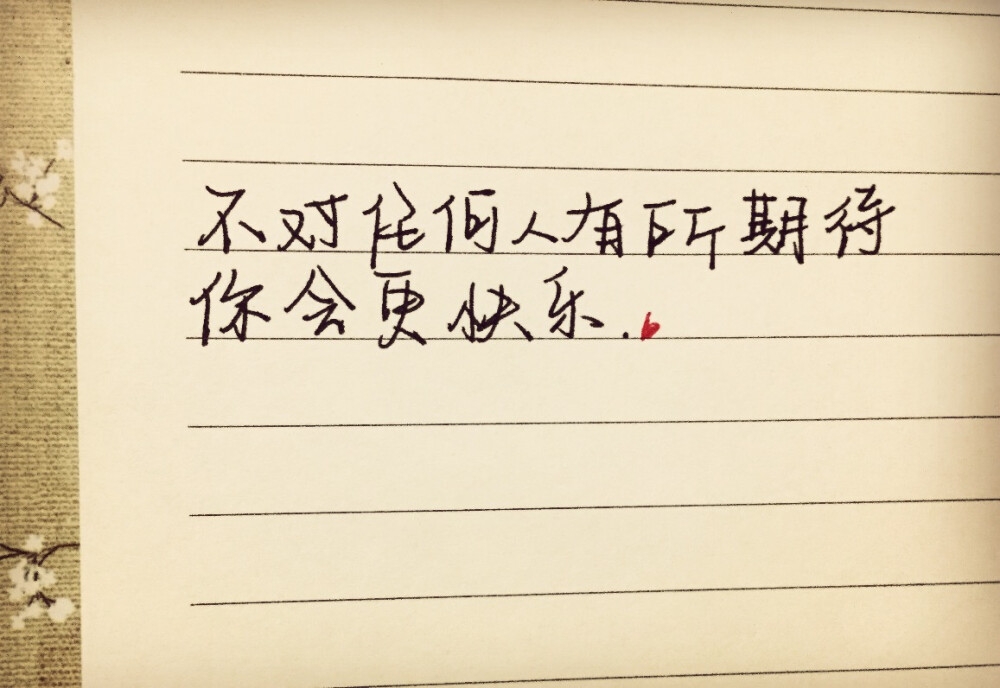 不对任何人有所期待
你会更快乐.